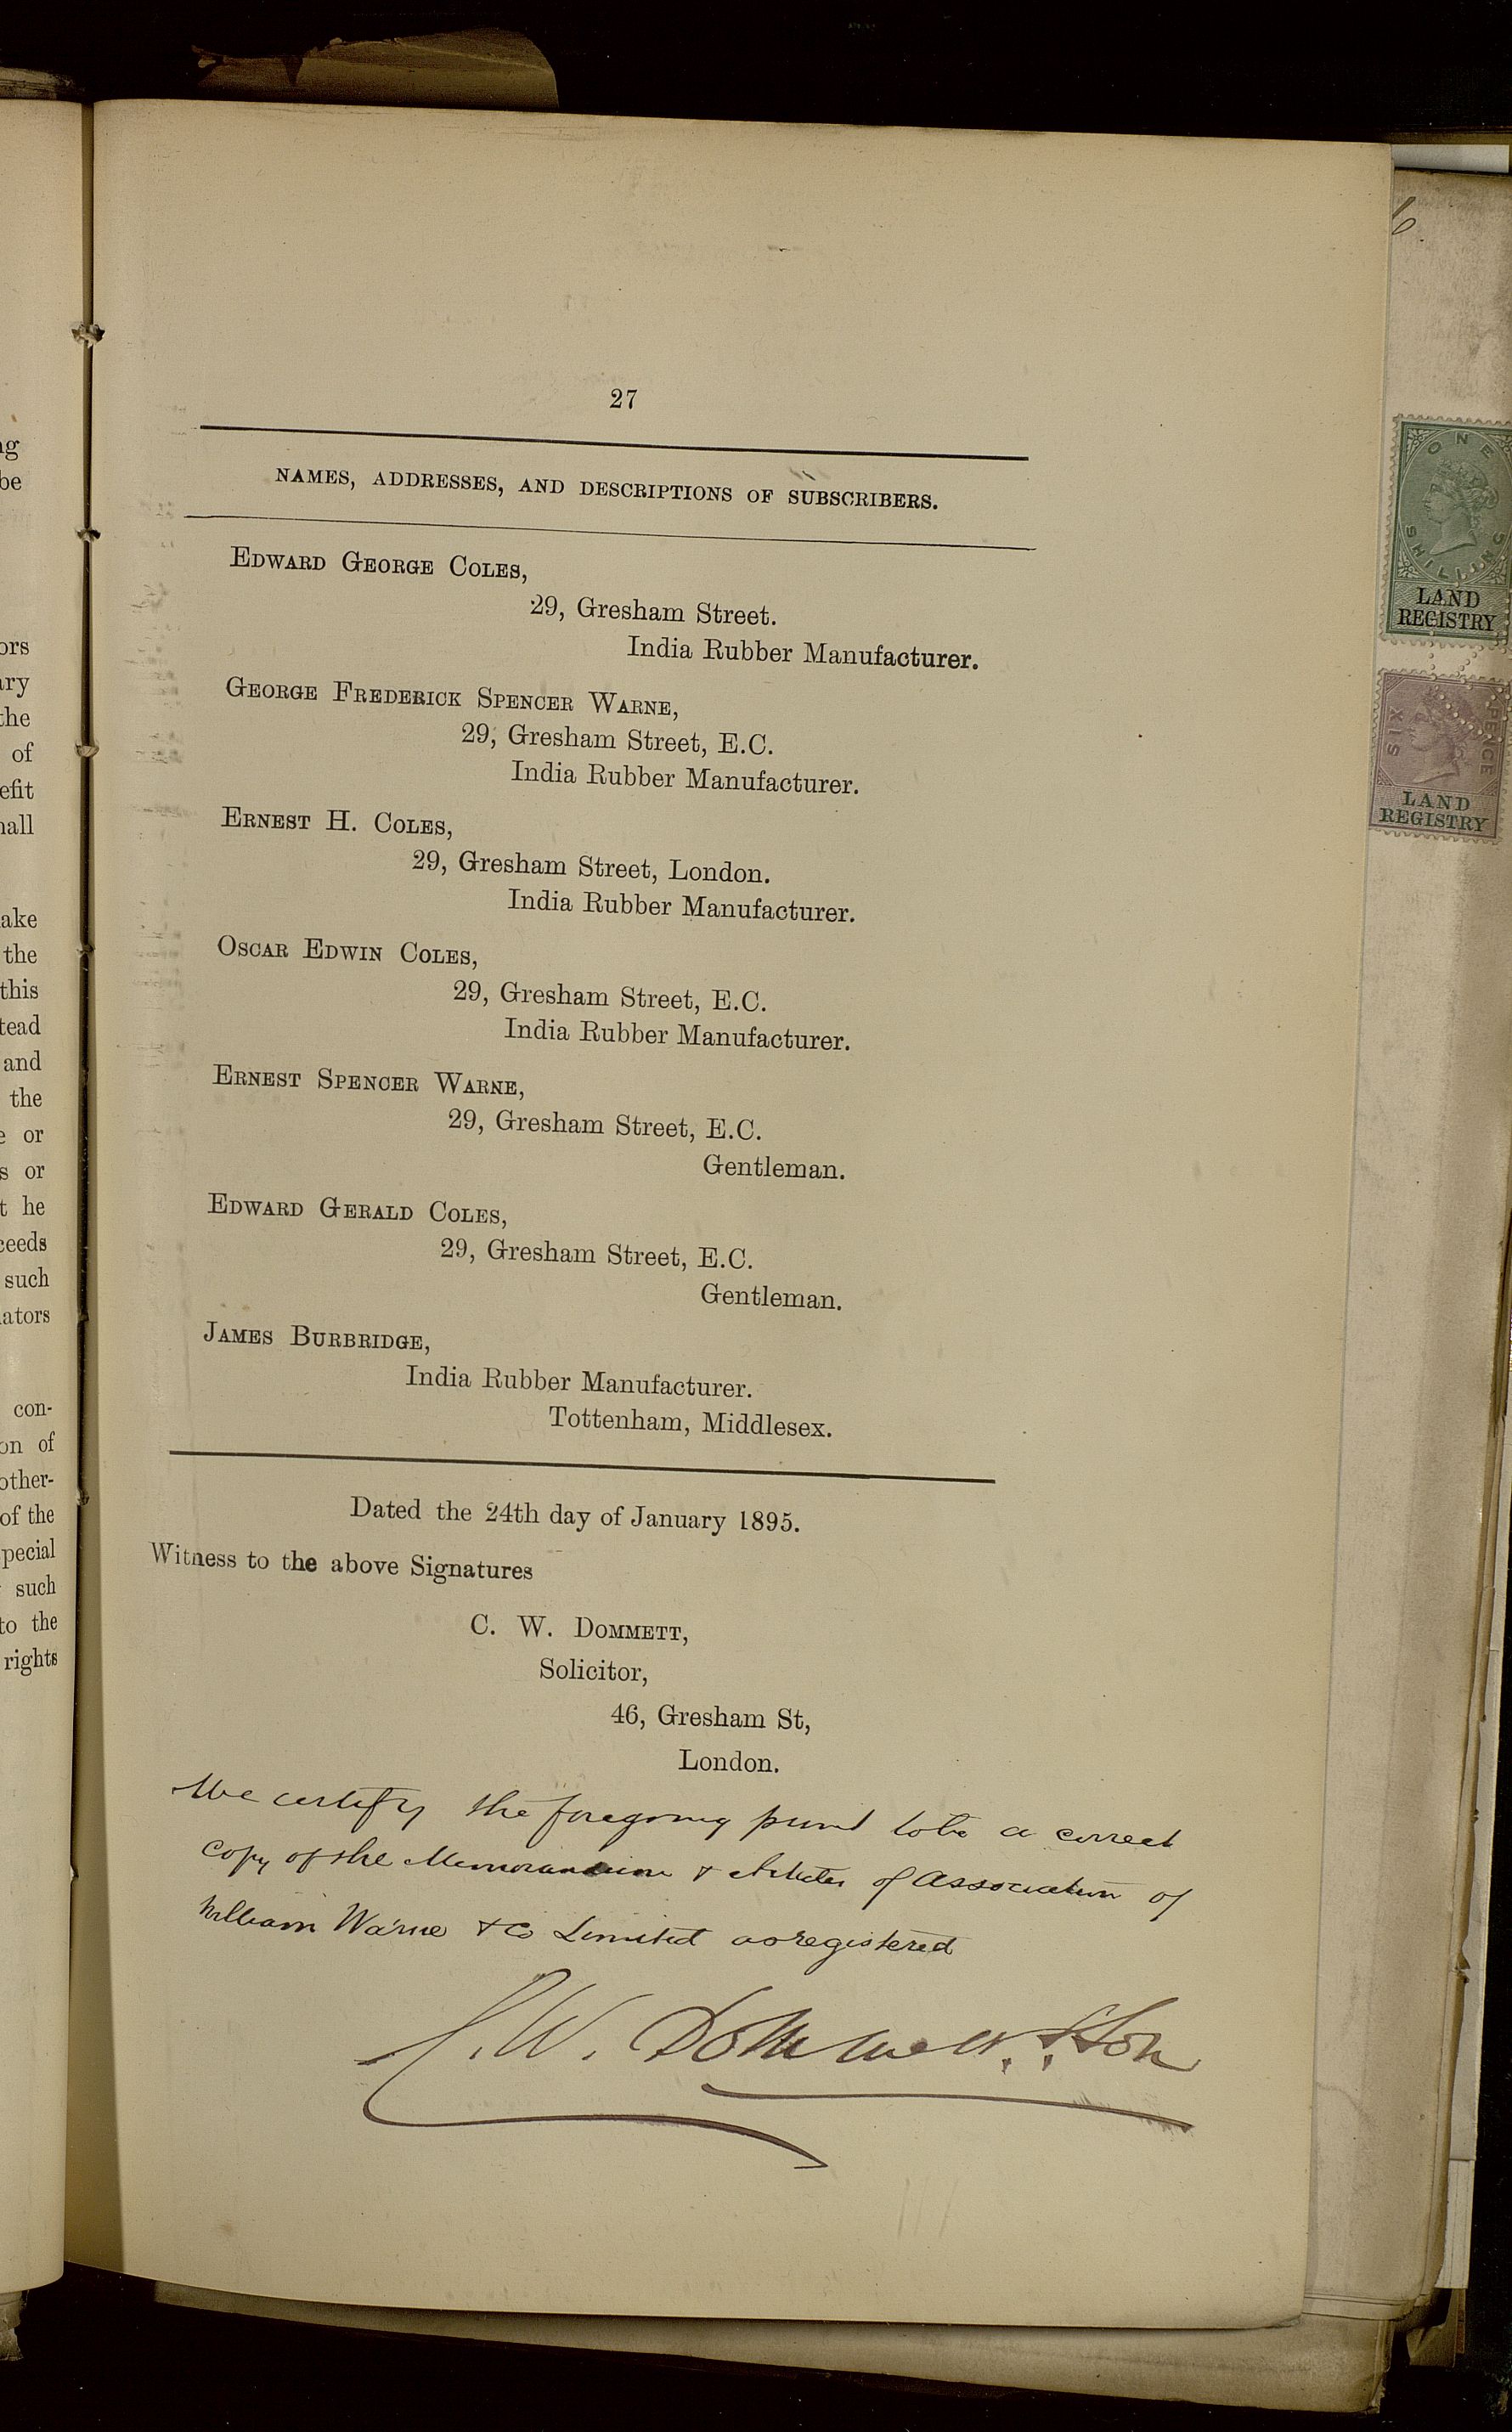 27
NAMES, ADDRESSES, AND DESCRIPTIONS OF SUBSCRIBERS.
EDWARD GEORGE COLES,
29, Gresham Street.
India Rubber Manufacturer.
GEORGE FREDERICK SPENCER WARNE,
29, Gresham Street, E.C.
India Rubber Manufacturer.
ERNEST H. COLES,
29, Gresham Street, London.
India Rubber Manufacturer.
OSCAR EDWIN COLES,
29, Gresham Street, E.C.
India Rubber Manufacturer.
ERNEST SPENCER WARNE,
29, Gresham Street, E.C.
Gentleman.
EDWARD GERALD COLES,
29, Gresham Street, E.C.
Gentleman.
JAMES BURBRIDGE,
India Rubber Manufacturer.
Tottenham, Middlesex.
Dated the 24th day of January 1895.
Witness to the above Signatures
C. W. DOMMETT,
Solicitor,
46, Gresham St,
London.
We certify the foregoing print to be a correct
copy of the Memorandum & Articles of Association of
William Warne & Co Limited as registered
C. W. Dommett & Son
ng
be
ors
ary
the
of
efit
hall
ake
the
this
tead
and
the
e or
s or
t he
ceeds
such
ators
con-
on of
other-
of the
pecial
such
to the
rights
6.
ONE SHILLING
LAND
REGISTRY
SIX PENCE
LAND
REGISTRY